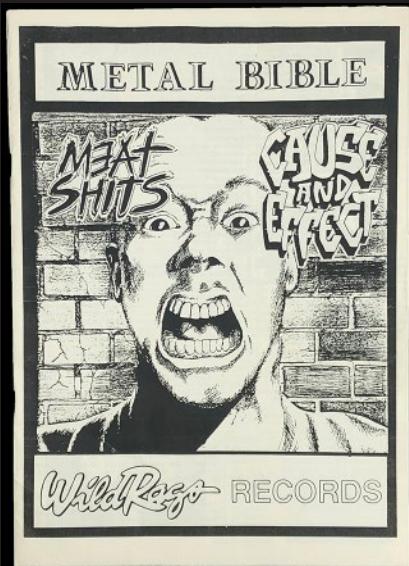 METAL BIBLE
MEAT
SHITS
CAUSE
AND
EFFECT
Wild Rags RECORDS